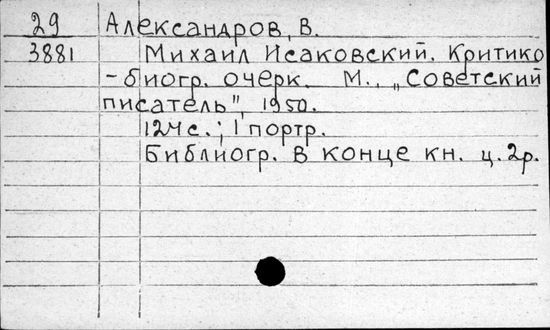 29 Александров, В.
3881 Михаил Исаковский. Критико
-биогр. очерк. М., „Советский
писатель", 1950.
124 с.; 1 портр.
Библиогр. в конце кн. ц. 2р.